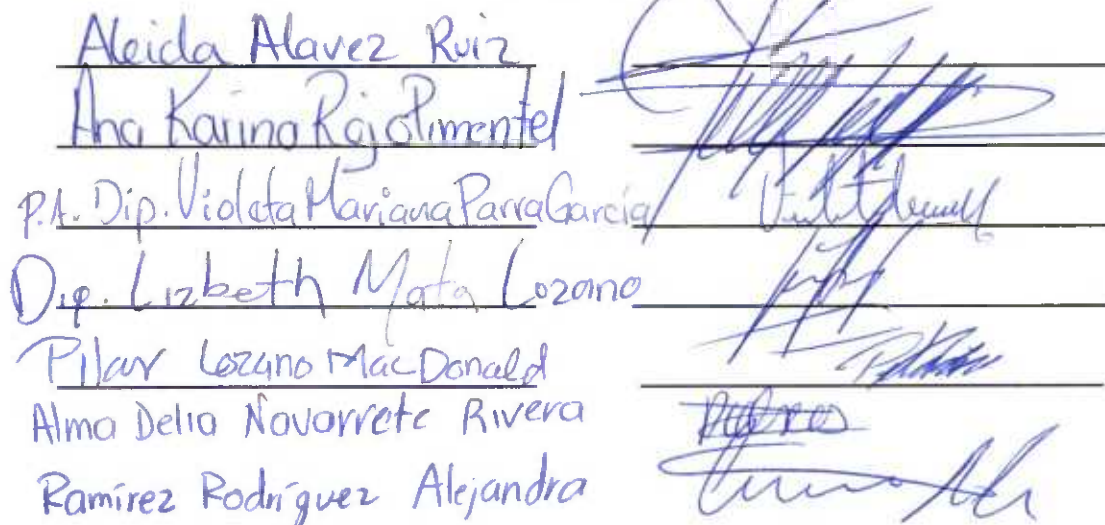 Aleida Alavez Ruiz
Ana Karina Rojo Pimentel
P.A. Dip. Violeta Mariana Parra García
Dip. Lizbeth Mata Lozano
Pilar Lozano MacDonald
Alma Delia Navarrete Rivera
Ramírez Rodríguez Alejandra